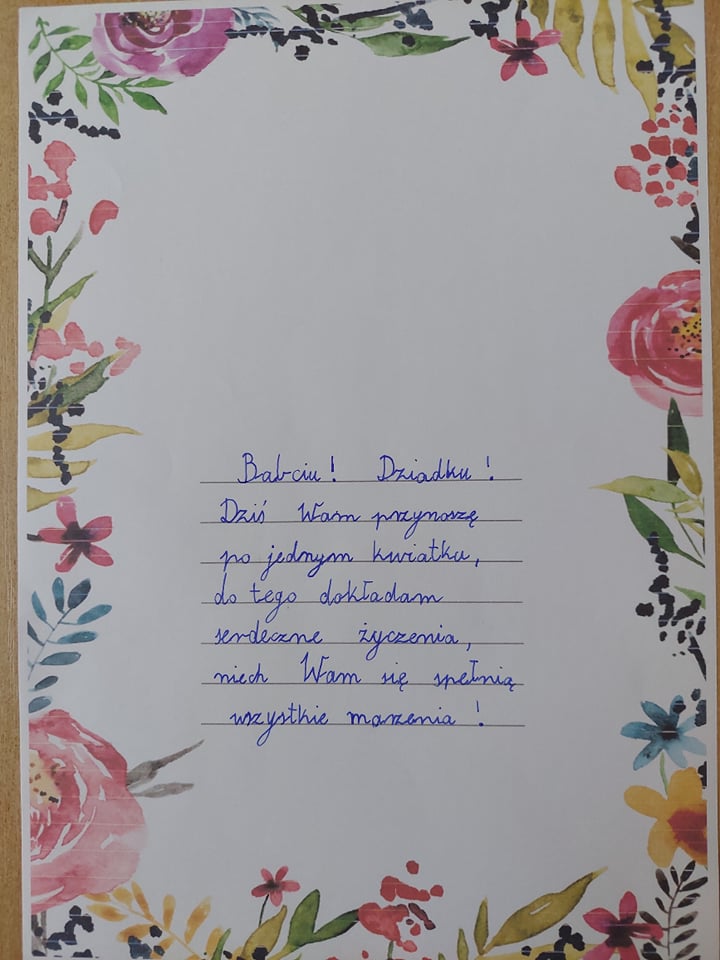 Babciu! Dziadku!
Dziś Wam przynoszę
po jednym kwiatku,
do tego dokładam
serdeczne życzenia,
niech Wam się spełnią
wszystkie marzenia!